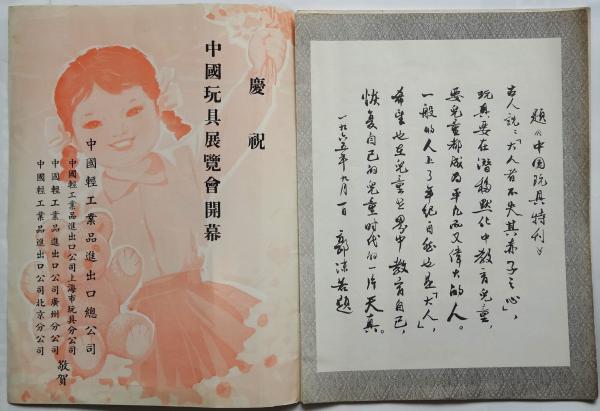 慶祝
中國玩具展覽會開幕
中國輕工業品進出口總公司
中國輕工業品進出口公司上海市玩具分公司
中國輕工業品進出口公司廣州分公司
中國輕工業品進出口公司北京分公司
敬賀
題《中国玩具特刊》
古人説:「大人者不失其赤子之心」,
玩具要在潜移默化中教育兒童,
要兒童都成为平凡而又偉大的人。
一般的人上了年纪自然也是「大人」,
希望也在兒童世界中教育自己,
恢复自己的兒童时代的一片天真。
一九六五年九月一日 郭沫若題